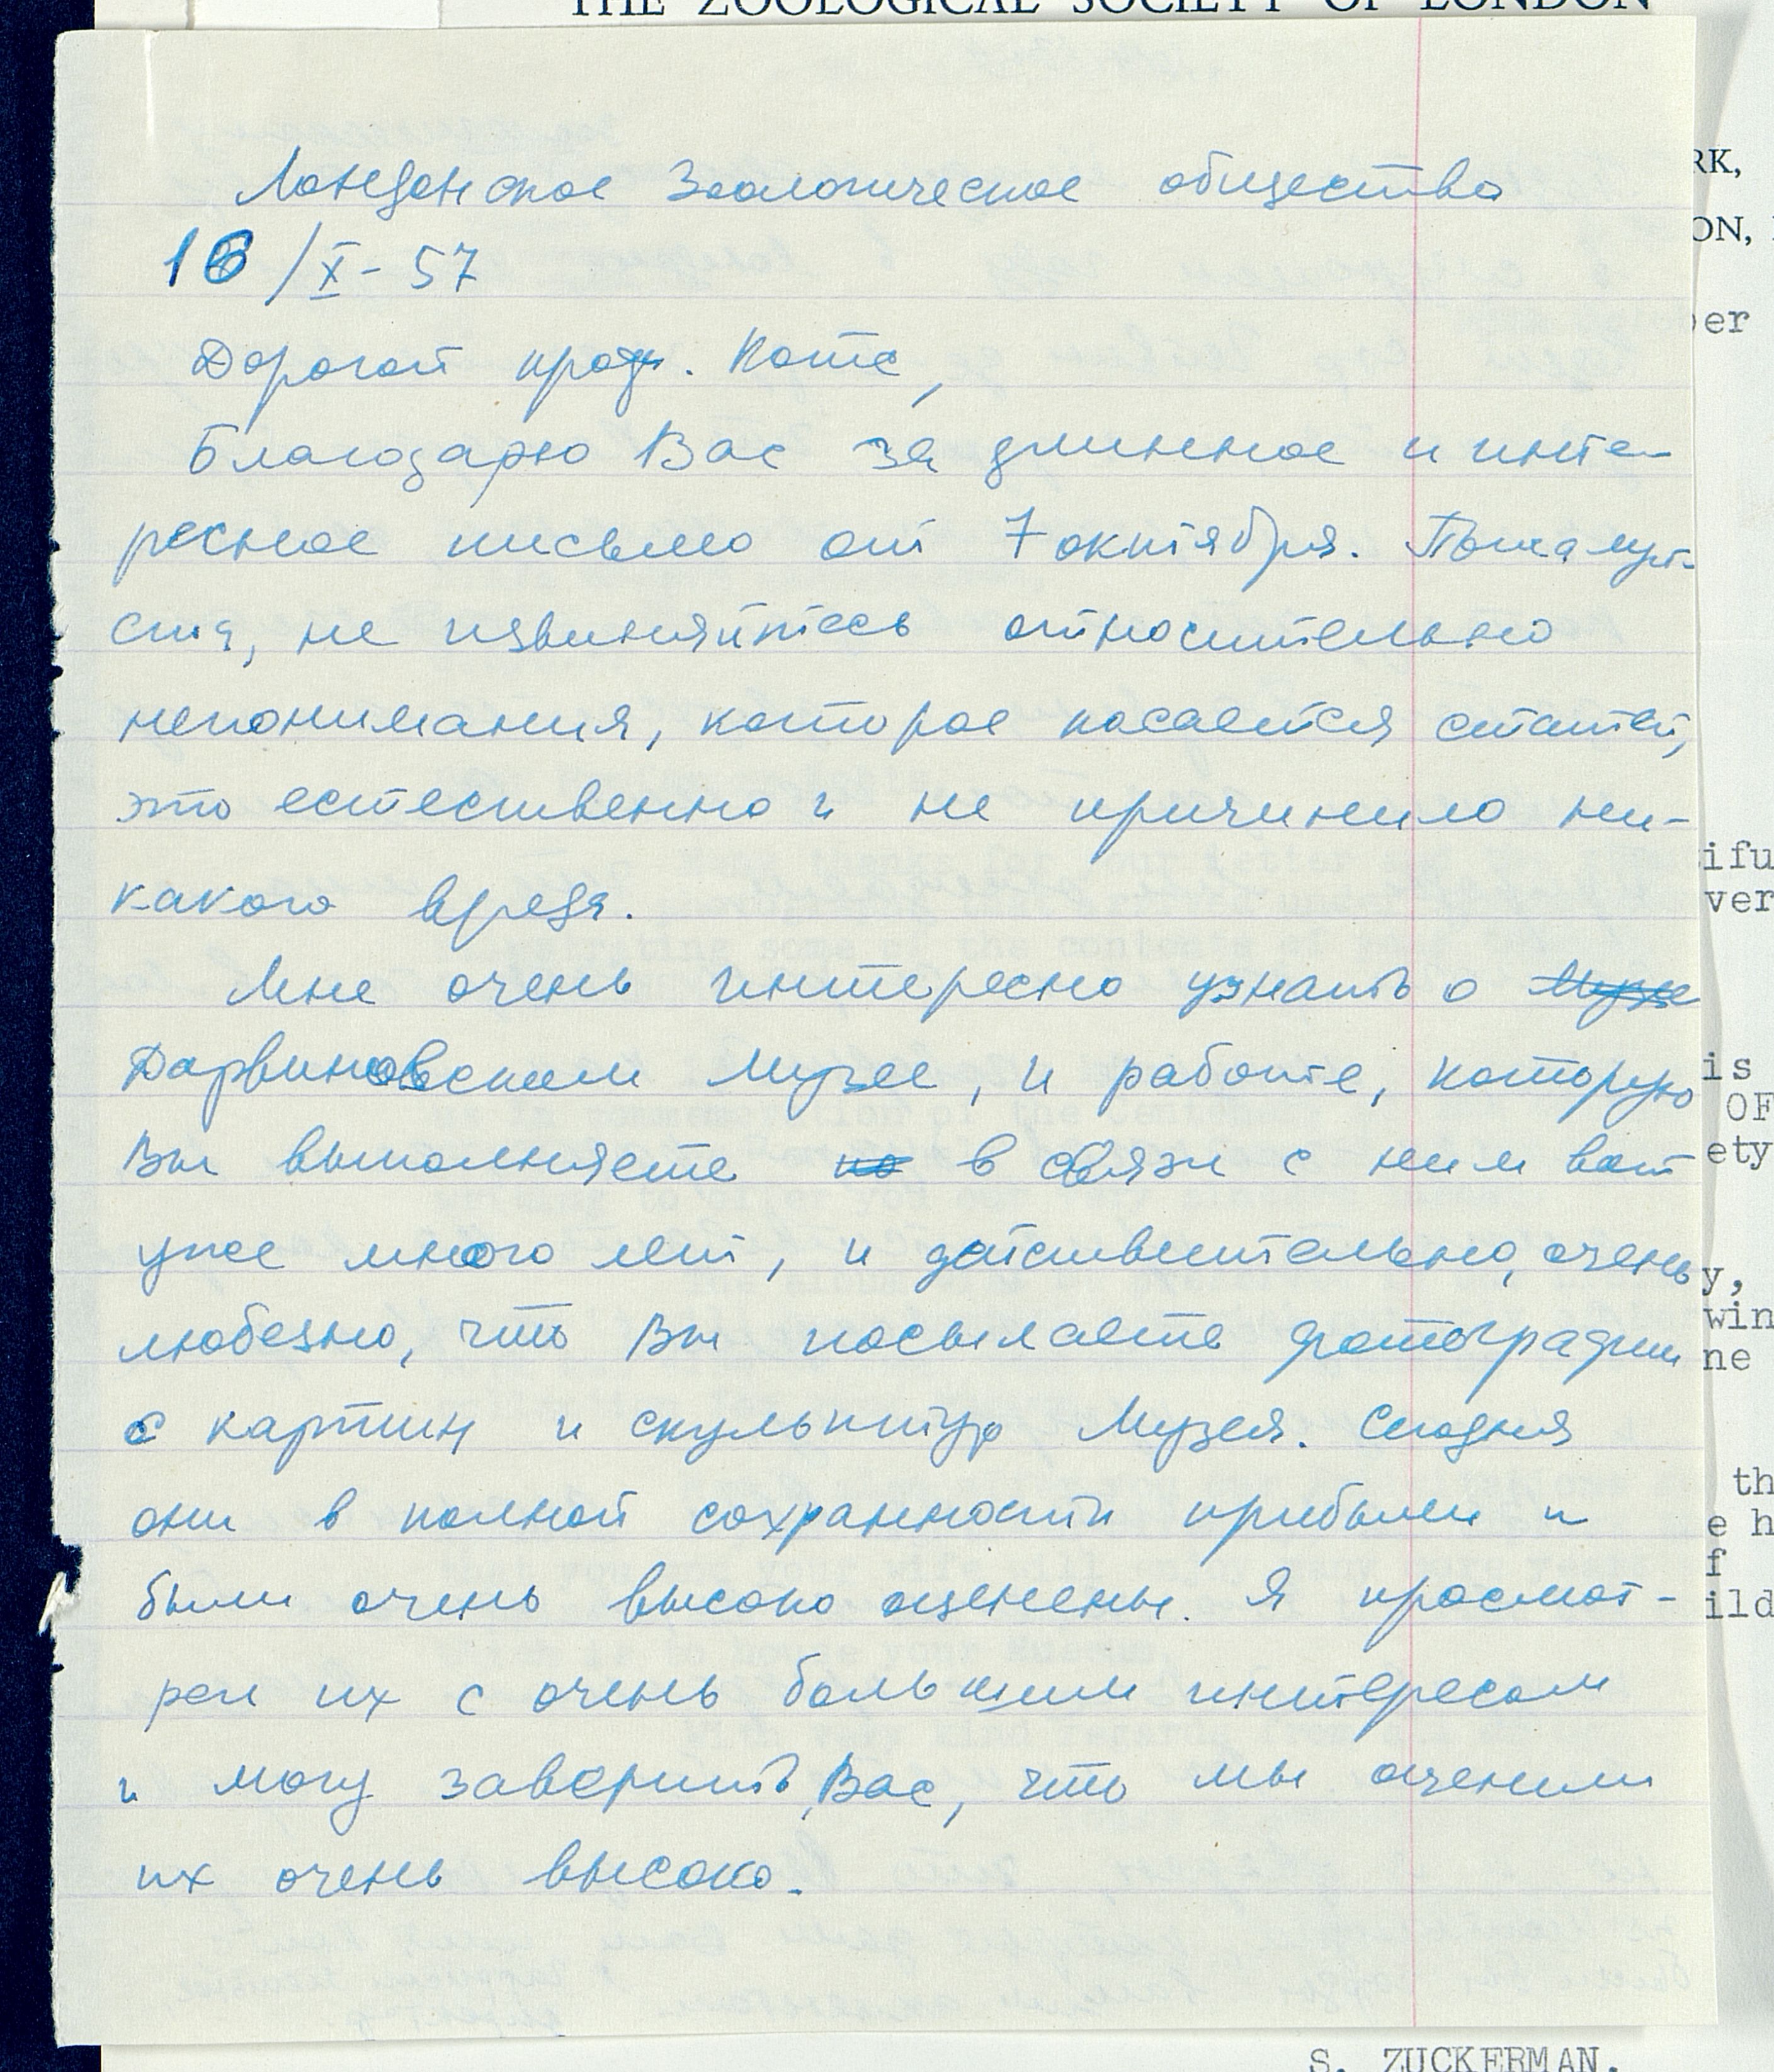 THE ZOOLOGICAL SOCIETY OF LONDON
Лондонское Зоологическое общество
16/X-57
Дорогой проф. Котс,
Благодарю Вас за длинное и инте-
ресное письмо от 7 октября. Пожалуй-
ста, не извиняйтесь относительно
непонимания, которое касается статей,
это естественно и не причинило ни-
какого вреда.
Мне очень интересно узнать о Музе
Дарвиновском Музее, и работе, которую
Вы выполняете по в связи с ним вот
уже много лет, и действительно, очень
любезно, что Вы посылаете фотографии
с картин и скульптур Музея. Сегодня
они в полной сохранности прибыли и
были очень высоко оценены. Я просмот-
рел их с очень большим интересом
и могу заверить Вас, что мы оценили
их очень высоко.
RK,
ON,
er
ifu
ver
is
OF
ety
y,
win
ne
th
e h
f
ild
S. ZUCKERMAN.